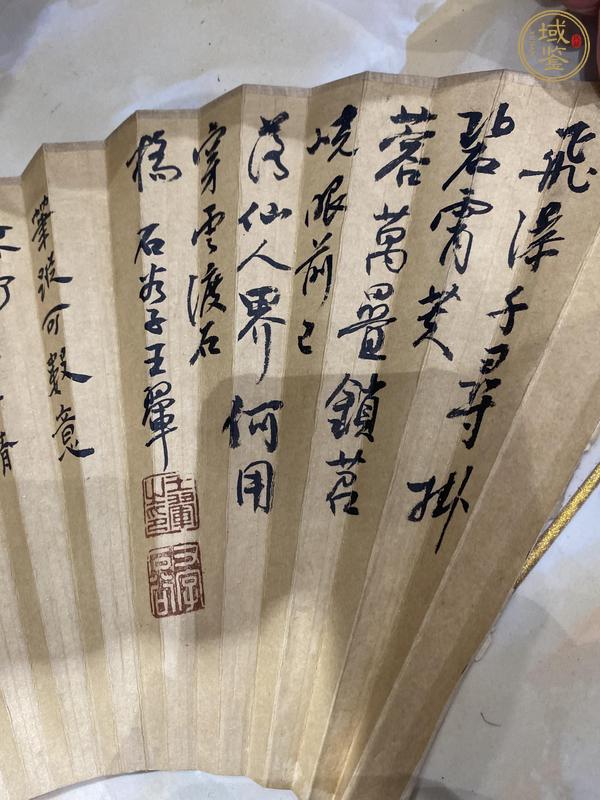 飛瀑千尋掛
碧霄芙
蓉萬疊鎖苕
嶢眼前已
落仙人界何用
穿雲渡石
橋 石谷子王翬
王翬之印
筆可意
域鉴